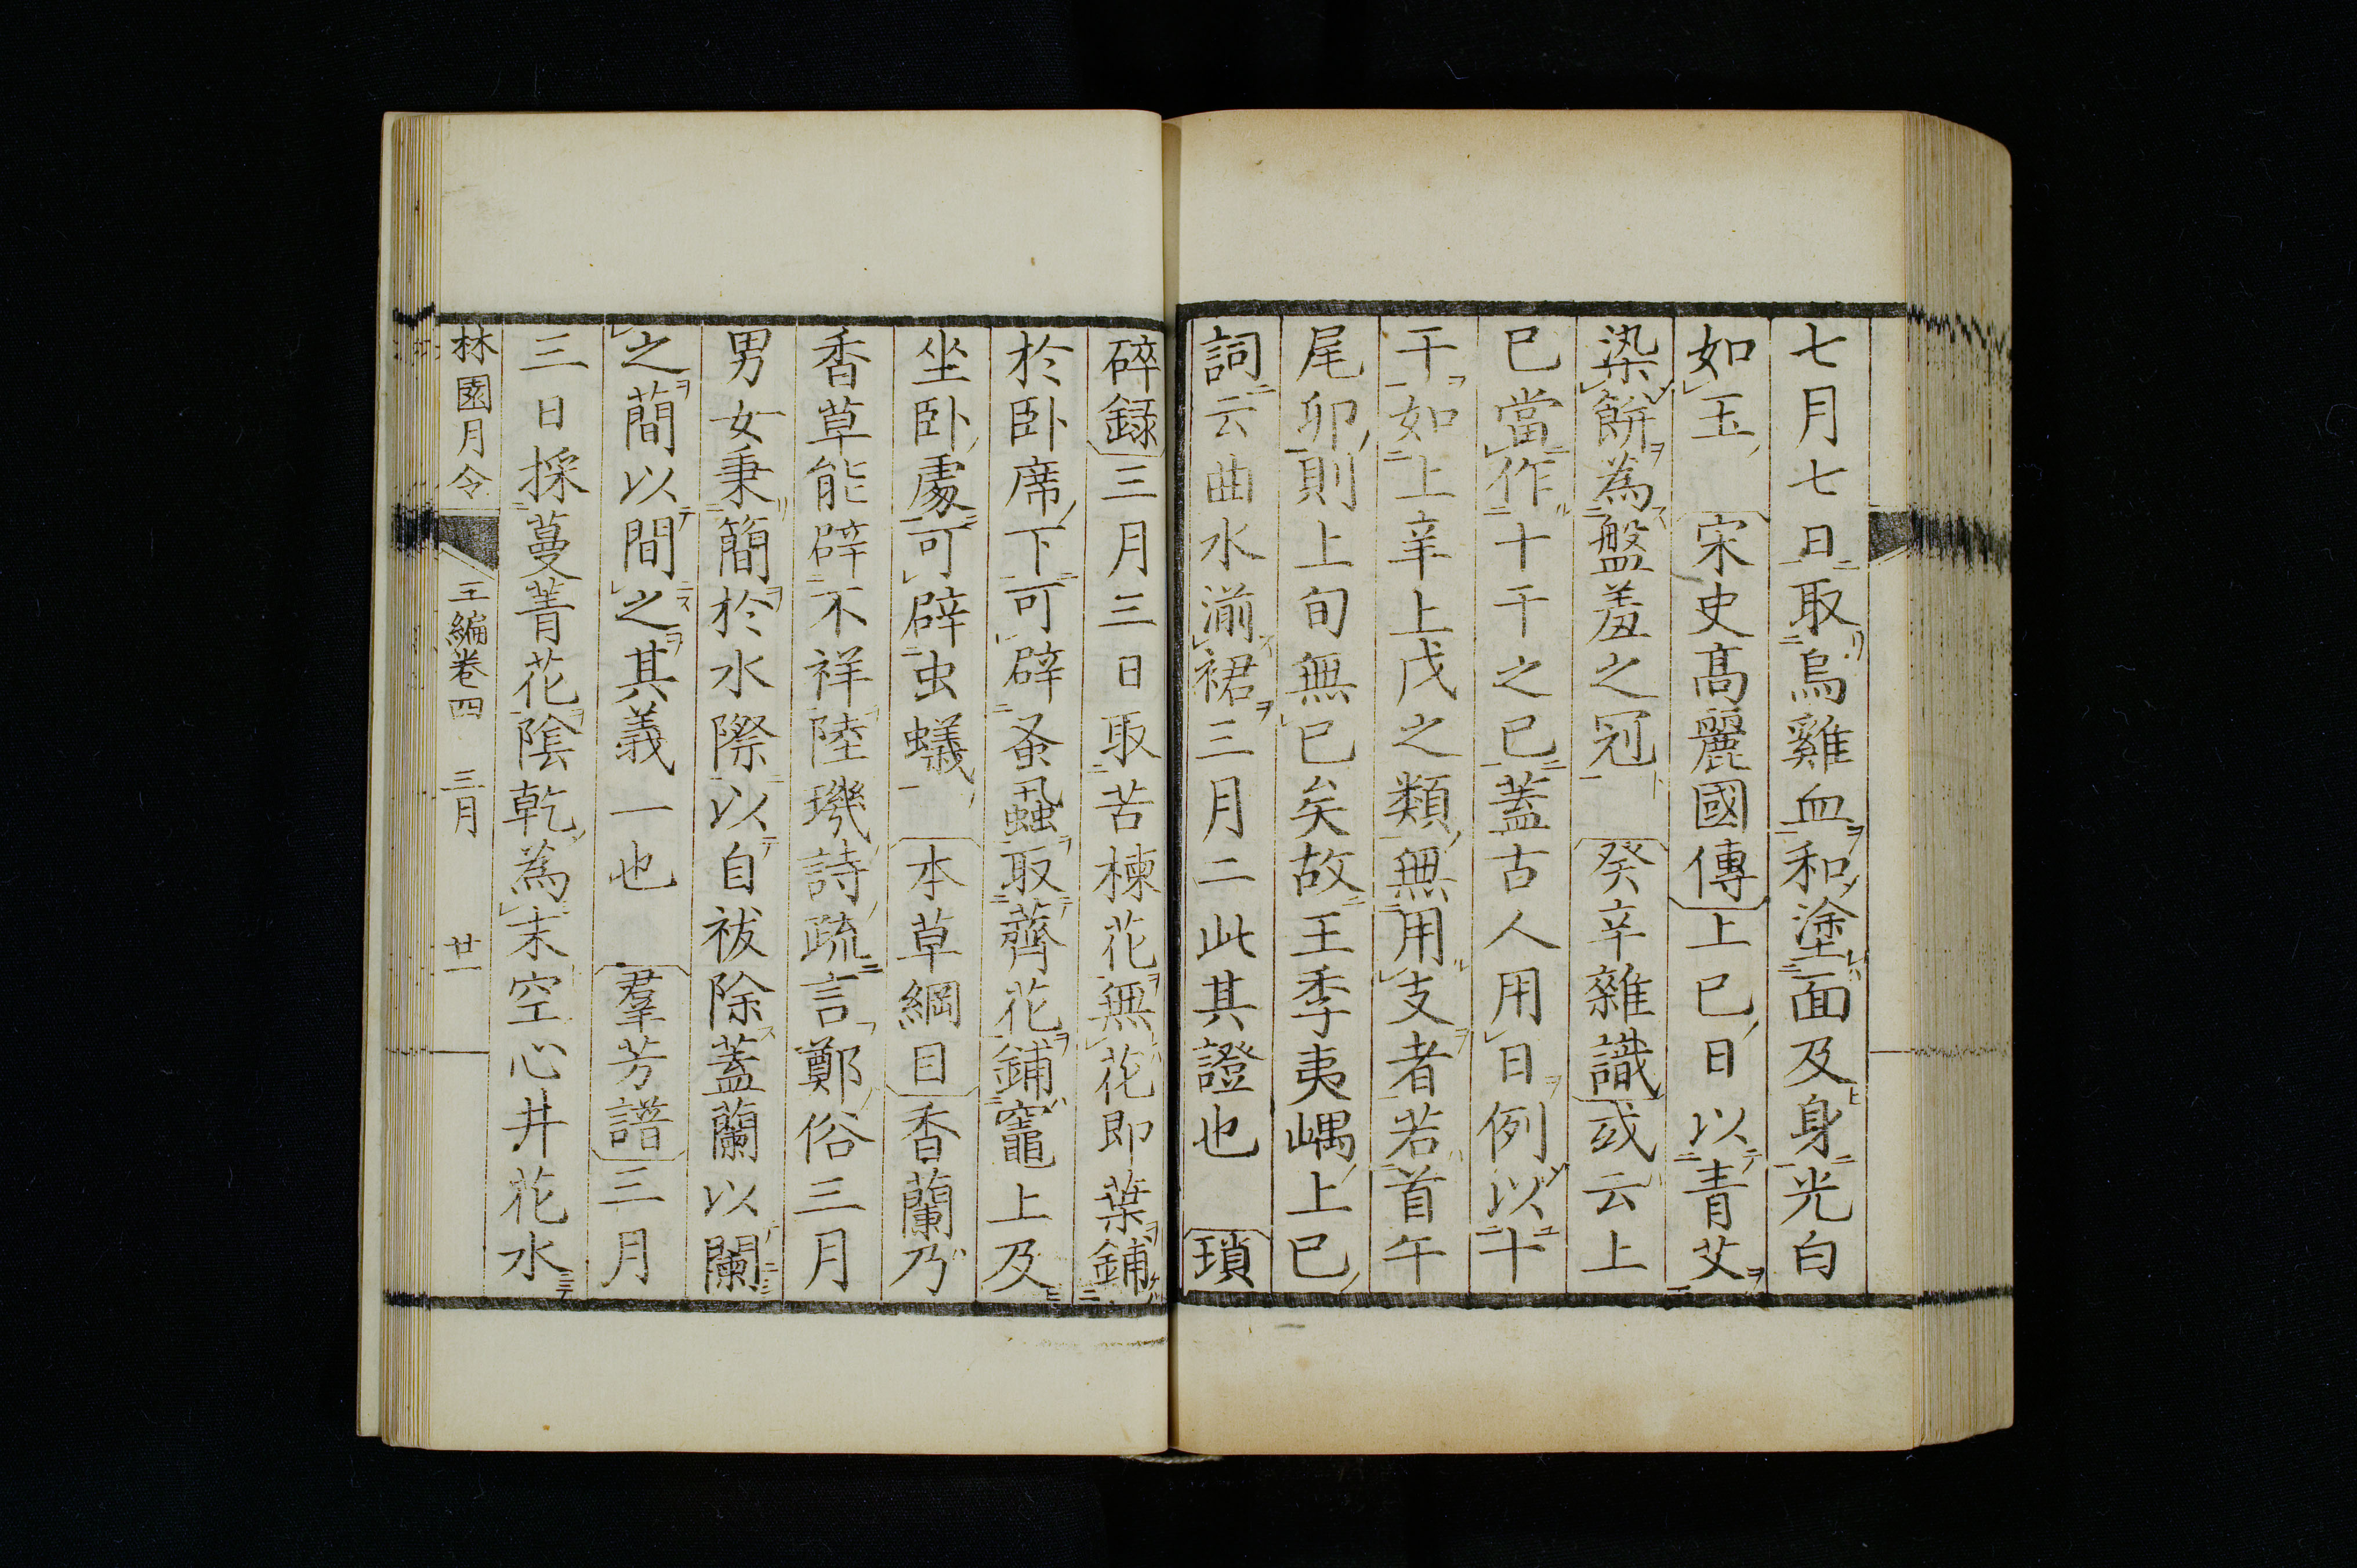 七月七日取烏雞血和塗面及身光白
如玉 宋史髙麗國傳上巳日以青艾
染餅為盤羞之冠 癸辛雜識或云上
巳當作十干之巳蓋古人用日例以十
干如上辛上戊之類無用支者若首午
尾卯則上旬無巳矣故王季夷嵎上巳
詞云曲水湔裙三月二此其證也 瑣
碎録三月三日取苦楝花無花即葉鋪
於卧席下可辟蚤蝨取薺花鋪竈上及
坐卧處可辟虫蟻 本草綱目香蘭乃
香草能辟不祥陸璣詩疏言鄭俗三月
男女秉蕑於水際以自祓除蓋蘭以闌
之蕑以間之其義一也 羣芳譜三月
三日採蔓菁花陰乾為末空心井花水
林園月令 三編卷四 三月 廿一